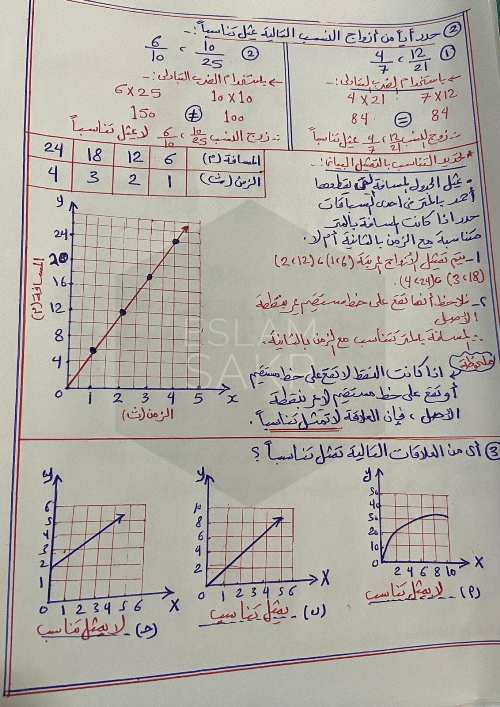 ② حدد أياً من أزواج النسب التالية يمثل تناسباً :-
① 4/7 ، 12/21
← باستخدام الضرب التبادلى :-
4 × 21   7 × 12
84 = 84
∴ زوج النسب 4/7 ، 12/21 يمثل تناسباً
② 6/10 ، 10/25
← باستخدام الضرب التبادلى :-
6 × 25   10 × 10
150 ≠ 100
∴ زوج النسب 6/10 ، 10/25 لا يمثل تناسباً
المسافة (م) 6 12 18 24
الزمن (ث) 1 2 3 4
* تحديد التناسب بالتمثيل البيانى :-
• يمثل الجدول المسافة التى يقطعها
أحمد بالمتر فى احدى السباقات
حدد اذا كانت المسافة بالمتر
متناسبة مع الزمن بالثانية أم لا.
1 - يتم تمثيل الأزواج المرتبة (1،6) ، (2،12)
(3،18) ، (4،24).
2 - نلاحظ أنها تقع على خط مستقيم يمر بنقطة
الأصل
∴ المسافة بالمتر تتناسب مع الزمن بالثانية.
ملحوظة
اذا كانت النقط لا تقع على خط مستقيم
أو تقع على خط مستقيم لا يمر بنقطة
الأصل ، فإن العلاقة لا تمثل تناسباً.
y
24
20
16
12
8
4
0 1 2 3 4 5 x
المسافة (م)
الزمن (ث)
ESLAM
SAKR
③ أى من العلاقات التالية تمثل تناسباً ؟
y
50
40
30
20
10
0 2 4 6 8 10 X
(أ) لا يمثل تناسب
y
10
8
6
4
2
0 1 2 3 4 5 6 X
(ب) يمثل تناسب
y
6
5
4
3
2
1
0 1 2 3 4 5 6 X
(ج) لا يمثل تناسب